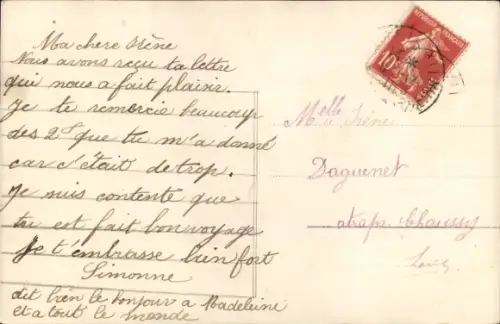 Ma chere Irène
Nous avons reçu ta lettre
qui nous a fait plaisir.
Je te remercie beaucoup
des 2f que tu m'a donné
car c'était de trop.
Je suis contente que
tu est fait bon voyage
Je t'embrasse bien fort
Simonne
dit bien le bonjour a Madeleine
et a tout le monde
REPUBLIQUE FRANÇAISE
10c
Melle Irène
Daguenet
Chaussy